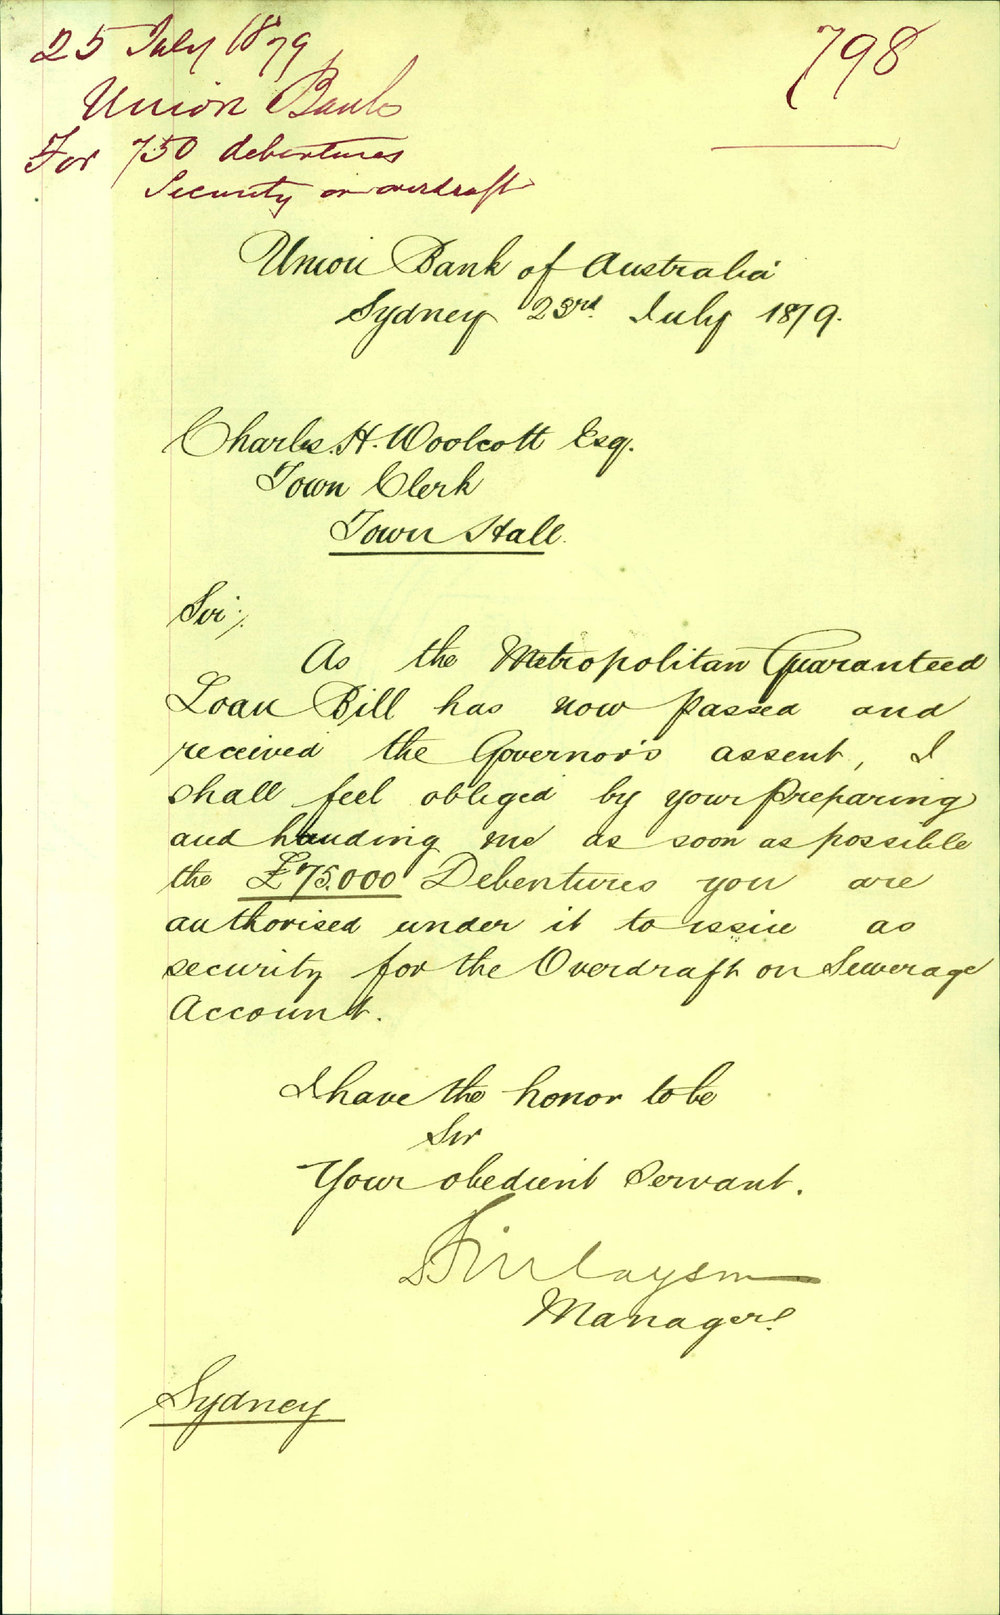 25 July 1879
798
Union Bank
For 750 debentures
Security on overdraft
Union Bank of Australia
Sydney 23rd. July 1879.
Charles. H. Woolcott Esq.
Town Clerk
Town Hall.
Sir,
As the Metropolitan Guaranteed
Loan Bill has now passed and
received the Governor's assent, I
shall feel obliged by your preparing
and handing me as soon as possible
the £75.000 Debentures you are
authorised under it to issue as
security for the Overdraft on Sewerage
Account.
I have the honor to be
Sir
Your obedient Servant.
Finlayson
Manager.
Sydney